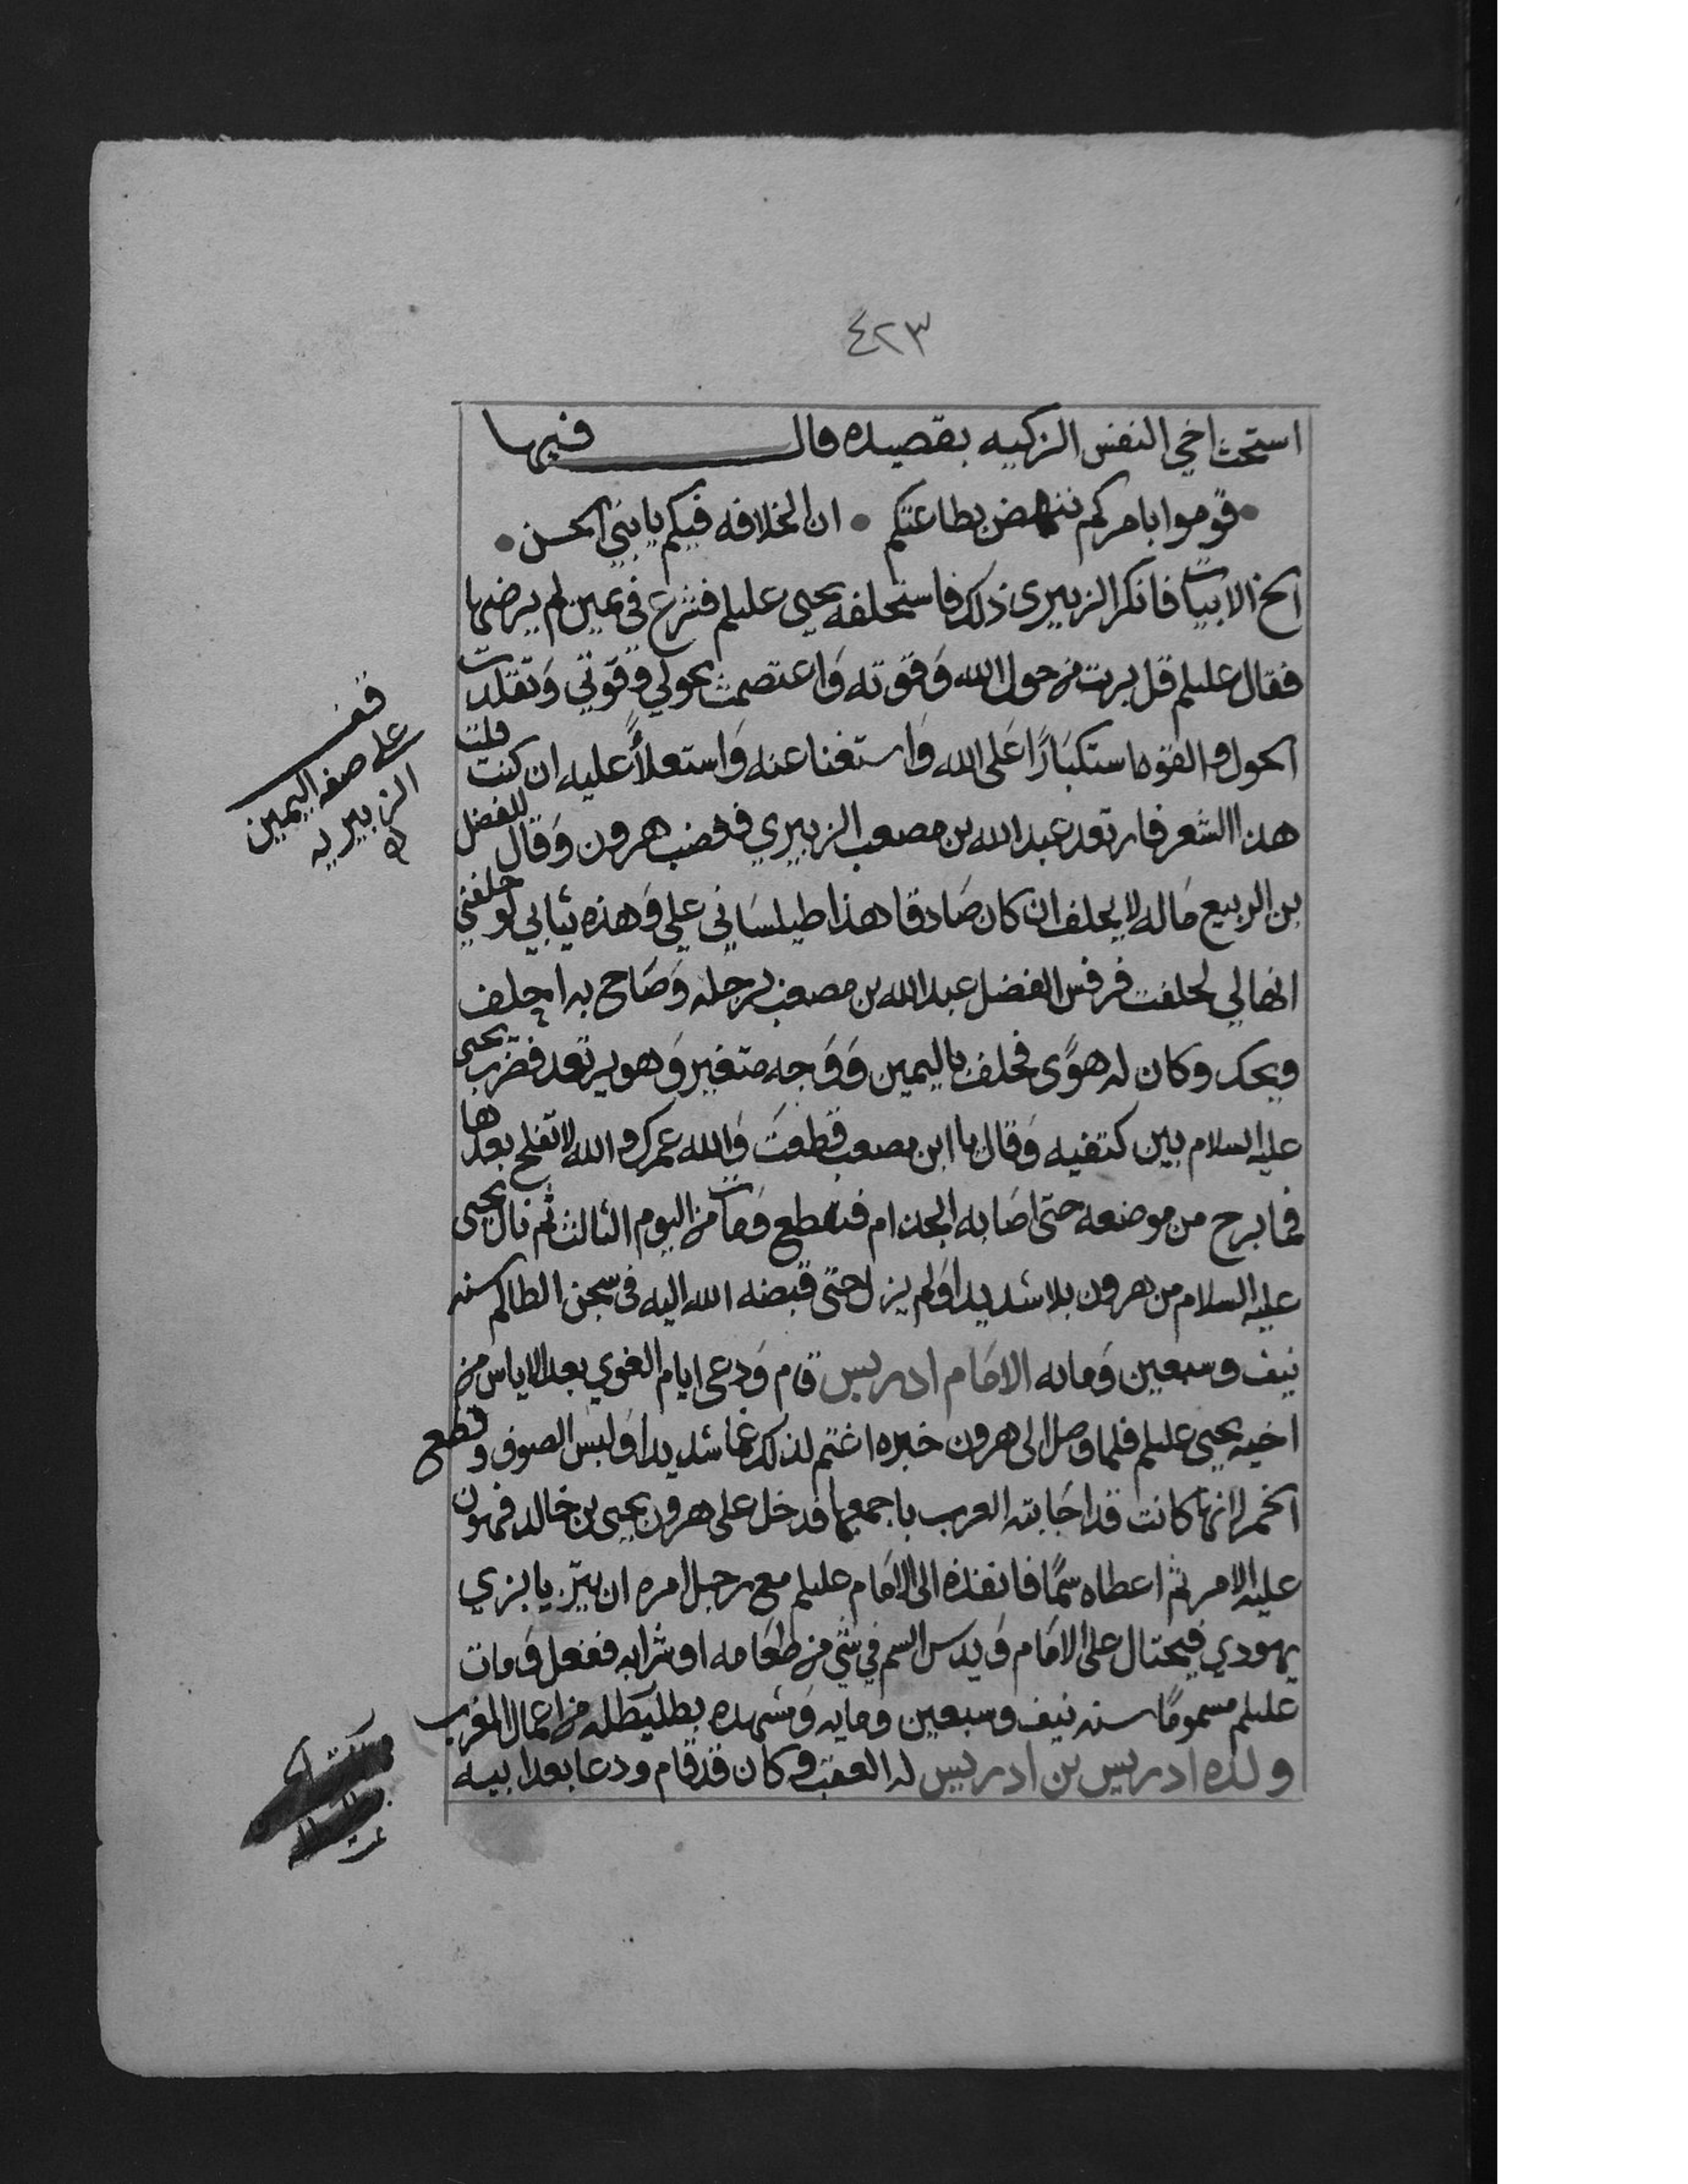 ٤٢٣
استحث اخي النفس الزكيه بقصيده قال فيها
قوموا بامركم ننهض بطاعتكم • ان الخلافه فيكم يا بني الحسن •
الخ الابيات فانكر الزبيري ذلك فاستحلفه يحيى عليلم فشرع في يمين لم يرضها
فقال عليلم قل بريت من حول الله وَقوته وَاعتصمت بحولي وقوّتي وَتقلدت
الحول والقوه استكبَارًا عَلى الله وَاستغنا عنه وَاستعلاً عليه ان كنت قلت
هذا الشعر فارتعد عبد الله بن مصعب الزبيري فغضب هرون وَقال للفضل
بن الربيع مَا له لا يحلف ان كان صَادقا هذا طيلسَاني علي وَهذه ثيابي لو حلفني
انها لي لحلفت فرفس الفضل عبد الله بن مصعب برجله وَصَاح به احلف
ويحك وكان له هوًى فحلف باليمين وَوَجهه متغير وَهو يرتعد فضرب يحيى
عليه السلام بين كتفيه وَقال يا ابن مصعب قطعتَ وَالله عمرك والله لا تفلح بعدها
فما برح من موضعه حتى اصَابه الجذام فتقطع وَمات من اليوم الثالث ثم نال يحيى
عليه السلام من هرون بلا شديدا وَلم يزل حتى قبضه الله اليه في سجن الظالم سنه
نيف وسبعين وَمايه الامَام ادريس قام وَدعى ايام الغوي بعد الاياس من
اخيه يحيى عليلم فلما وصل الى هرون خبره اغتم لذلك غما شديدا وَلبس الصوف وقطع
الخمر لانها كانت قد اجَابته العرب باجمعها فدخل على هرون يحيى بن خالد فهون
عليه الامر ثم اعطاه سمًا فانفذه الى الامَام عليلم مع رجل امره ان يتزيا بزي
يهودي فيحتال على الامَام وَيدس السم في شي من طعَامه او شرابه ففعل وَمات
عليلم مسمومًا سنه نيف وسبعين ومايه وَمشهده بطليطله من اعمال المغرب
ولده ادريس بن ادريس له العقب وكان قد قام ودعا بعد ابيه
قف
على صفه اليمين
الزبيريه